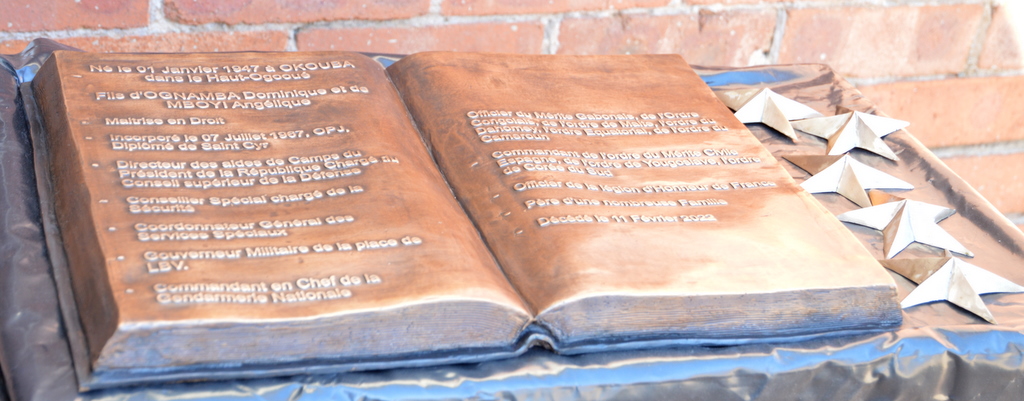 Né le 01 Janvier 1947 à OKOUBA
dans le Haut-Ogooué
Fils d'OGNAMBA Dominique et de
MBOYI Angélique
- Maîtrise en Droit
- Incorporé le 07 Juillet 1967, OPJ,
Diplomé de Saint Cyr
- Directeur des aides de Camps du
Président de la République Chargé du
Conseil supérieur de la Défense
- Conseiller Spécial chargé de la
Sécurité
- Coordonnateur Général des
Services Spéciaux
- Gouverneur Militaire de la place de
LBV.
- Commandant en Chef de la
Gendarmerie Nationale
Officier du Mérite Gabonais, de l'Ordre
Congolais, de l'ordre de l'ordre du
Dahomey, l'ordre Equatorial, de l'ordre du
Cameroun
- Commandant de l'ordre du Mérite Civile
Espagne, de l'ordre de Yougoslavie l'ordre
de Corée du Sud
- Officier de la légion d'Honneur de France
- Père d'une nombreuse Famille
- Décédé le 11 Février 2022